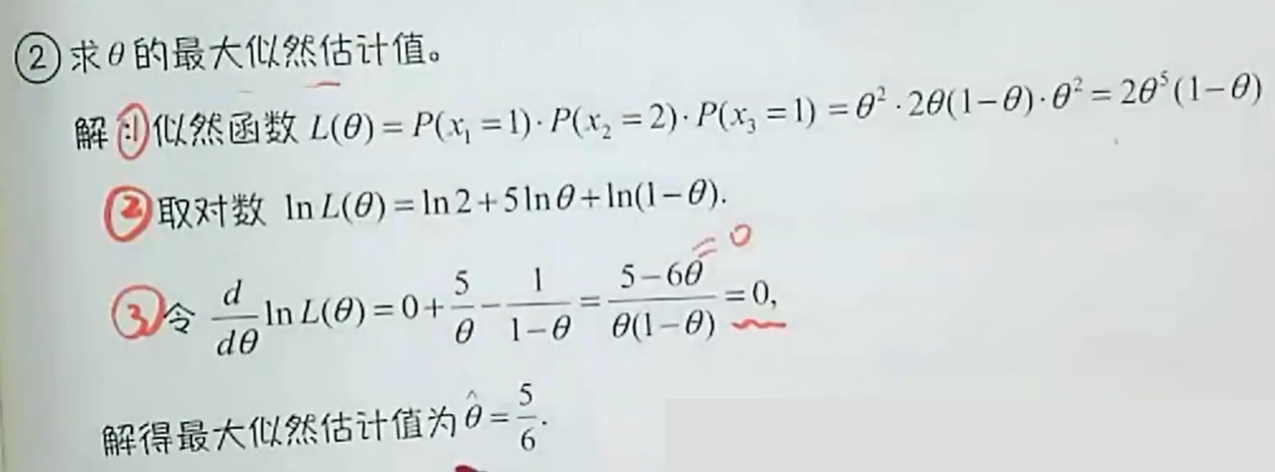 ②求θ的最大似然估计值。
解 ① 似然函数 L(θ) = P(x₁ = 1) · P(x₂ = 2) · P(x₃ = 1) = θ² · 2θ(1−θ) · θ² = 2θ⁵(1−θ)
② 取对数 ln L(θ) = ln 2 + 5 ln θ + ln(1−θ).
= 0
③ 令 d/dθ ln L(θ) = 0 + 5/θ − 1/(1−θ) = (5−6θ)/(θ(1−θ)) = 0,
解得最大似然估计值为 θ̂ = 5/6.